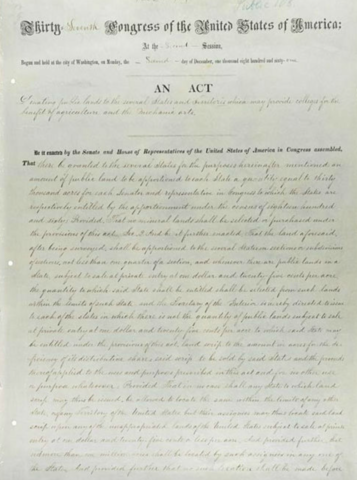 Public 108
Thirty-Seventh Congress of the United States of America:
At the Second Session,
Begun and held at the city of Washington, on Monday, the Second day of December, one thousand eight hundred and sixty-one.
AN ACT
Donating public lands to the several States and Territories which may provide colleges for the
benefit of agriculture and the mechanic arts.
Be it enacted by the Senate and House of Representatives of the United States of America in Congress assembled,
That there be granted to the several States for the purposes hereinafter mentioned an
amount of public land to be apportioned to each State a quantity equal to thirty
thousand acres for each Senator and representative in Congress to which the States are
respectively entitled by the apportionment under the census of eighteen hundred
and sixty: Provided, That no mineral lands shall be selected or purchased under
the provisions of this act. Sec. 2. And be it further enacted, That the land aforesaid,
after being surveyed, shall be apportioned to the several States in sections or subdivisions
of sections, not less than one quarter of a section, and whenever there are public lands in a
State subject to sale at private entry at one dollar and twenty five cents per acre,
the quantity to which said State shall be entitled shall be selected from such lands
within the limits of such State and the Secretary of the Interior is hereby directed to issue
to each of the States in which there is not the quantity of public lands subject to sale
at private entry at one dollar and twenty five cents per acre to which said State may
be entitled under the provisions of this act, land scrip to the amount in acres for the de-
ficiency of its distributive share: said scrip to be sold by said States and the proceeds
thereof applied to the uses and purposes prescribed in this act and for no other use
or purpose whatsoever: Provided, That in no case shall any State to which land
scrip may thus be issued, be allowed to locate the same within the limits of any other
State, or of any Territory of the United States but their assignees may thus locate said land
scrip upon any of the unappropriated lands of the United States subject to sale at private
entry at one dollar and twenty five cents or less per acre: And provided further, that
not more than one million acres shall be located by such assignees in any one of
the States: And provided further that no such location shall be made before